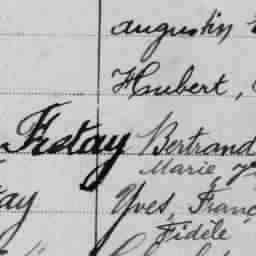 augustin
Hubert,
Fretay Bertrand
Marie
ay Yves, Franç
Fidèle